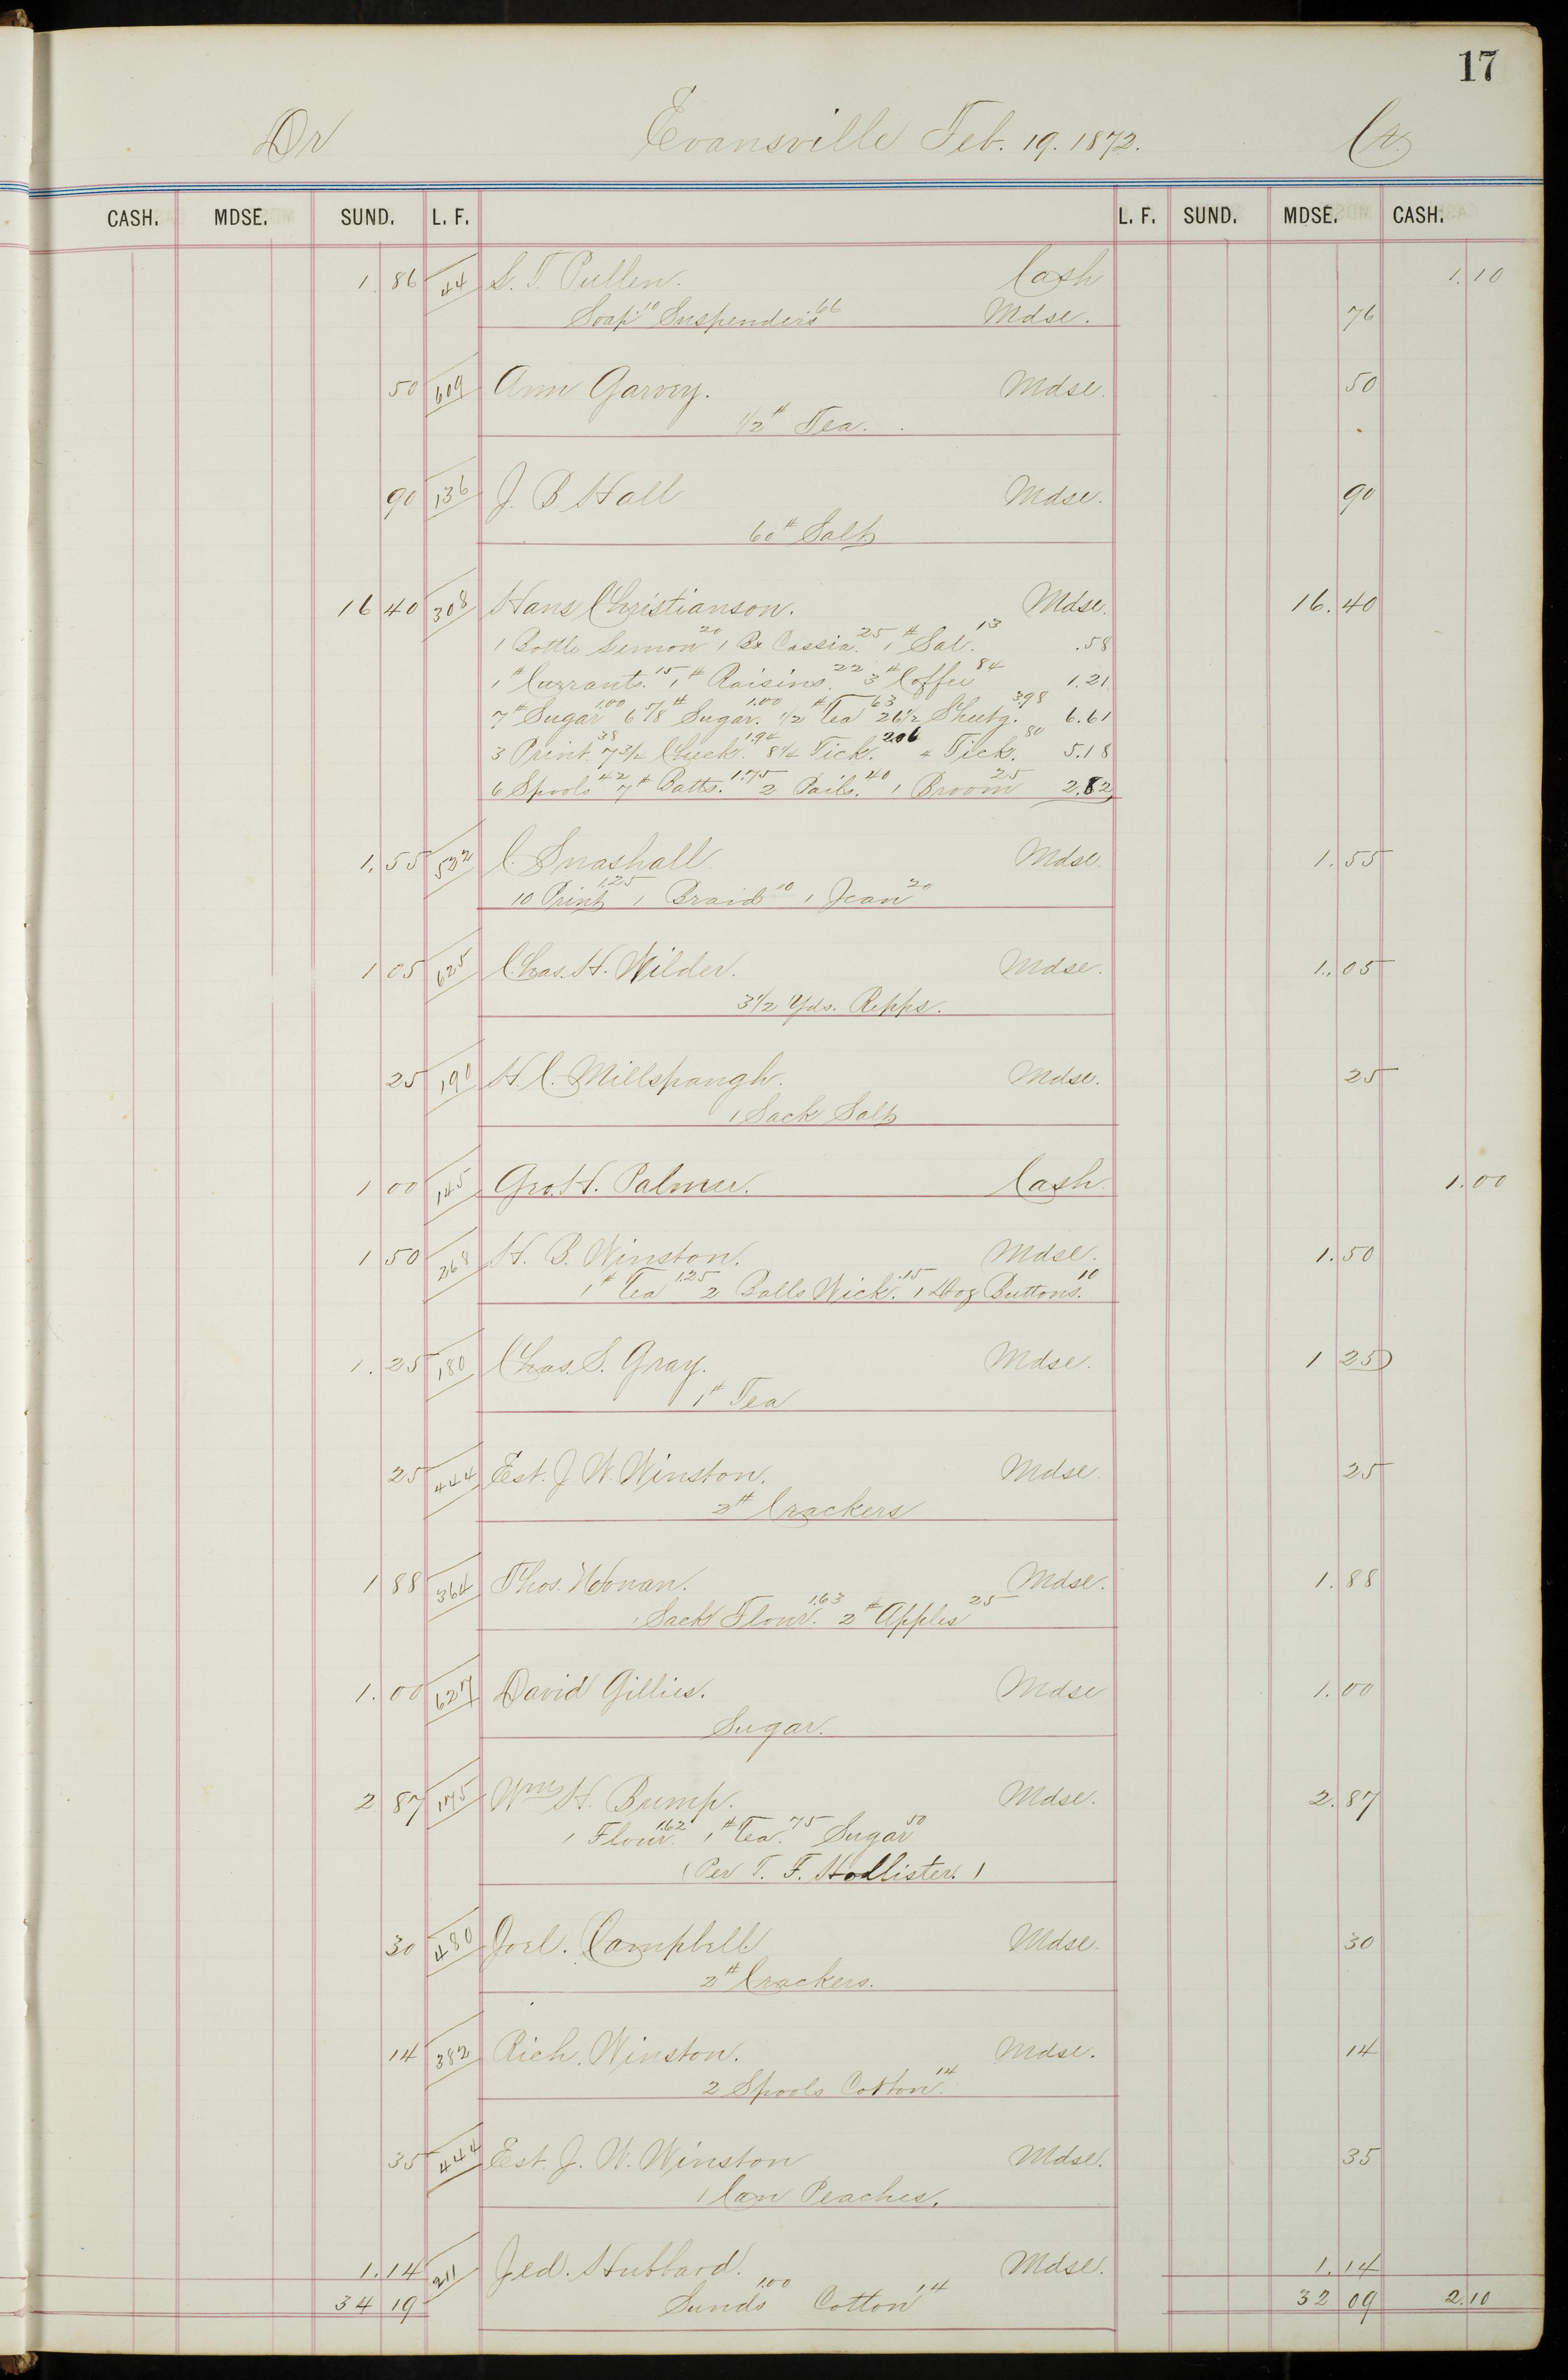 17
Dr Evansville Feb. 19. 1872. Cr.
CASH. MDSE. SUND. L. F. L. F. SUND. MDSE. CASH.
1.86 44 S. T. Pullen. Cash 1.10
Soap 10 Suspenders 66 Mdse. 76
50 609 Ann Garvey. Mdse. 50
1/2 # Tea.
90 136 J. B. Hall Mdse. 90
60 # Salt
16 40 308 Hans Christianson. Mdse. 16.40
1 Bottle Lemon 20 1 Bx Cassia. 25 1 # Sal. 13 .58
1 # Currants. 15 1 # Raisins. 22 3 # Coffee 84 1.21
7 # Sugar 1.00 6 7/8 # Sugar. 1.00 1/2 # Tea 63 26 1/2 Sheetg. 3.98 6.61
3 Print. 38 7 3/4 Check. 1.94 8 1/4 Tick. 2.06 4 Tick. 80 5.18
6 Spools 42 7 # Batts. 1.75 2 Pails. 40 1 Broom 25 2.82
1.55 532 C. Snashall Mdse. 1.55
10 Print 1.25 1 Braid 10 1 Jean 20
1 05 625 Chas. H. Wilder. Mdse. 1.05
3 1/2 Yds. Repps.
25 191 H. C. Millspaugh. Mdse. 25
1 Sack Salt
1 00 145 Geo. H. Palmer. Cash. 1.00
1 50 268 H. B. Winston. Mdse. 1.50
1 # Tea 1.25 2 Balls Wick. .15 1 Doz Buttons. 10
1.25 180 Chas. S. Gray. Mdse. 1 25
1 # Tea
25 444 Est. J. W. Winston. Mdse. 25
2 # Crackers
1 88 364 Thos. Noonan. Mdse. 1.88
1 Sack Flour. 1.63 2 # Apples 25
1.00 627 David Gillies. Mdse 1.00
Sugar.
2 87 175 Wm H. Bump. Mdse. 2.87
1 Flour. 1.62 1 # Tea. 75 Sugar 50
(Per T. F. Hollister.)
30 480 Joel. Campbell Mdse. 30
2 # Crackers.
14 382 Rich. Winston. Mdse. 14
2 Spools Cotton. 14
35 444 Est. J. W. Winston Mdse. 35
1 Can Peaches.
1.14 211 Jed. Hubbard. Mdse. 1.14
34 19 Sunds 1.00 Cotton 14 32 09 2.10